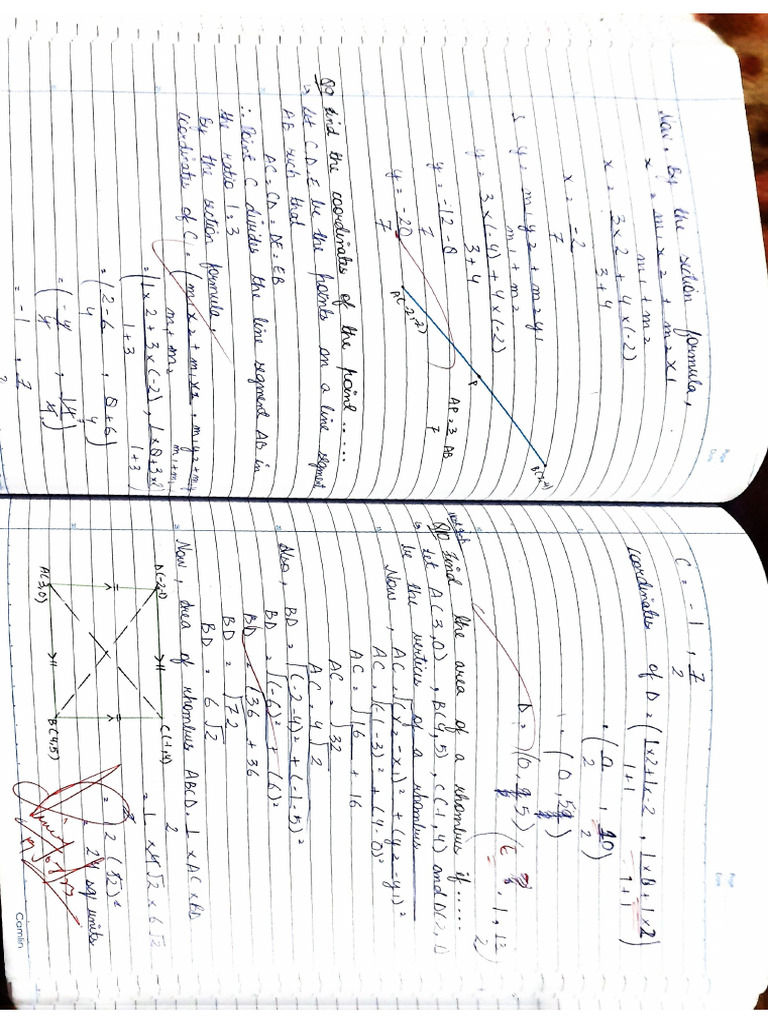 Now, By the section formula,
x = m1x2 + m2x1
m1 + m2
x = 3x2 + 4x(-2)
3+4
x = -2
7
y = m1y2 + m2y1
m1 + m2
y = 3x(-4) + 4x(-2)
3+4
y = -12-8
7
y = -20
7
P
AP = 3 AB
7
Q9 Find the coordinates of the point......
Let C, D, E be the points on a line segment
AB such that
AC = CD = DE = EB
∴ Point C divides the line segment AB in
the ratio 1:3
By the section formula,
coordinates of C =
m1+m2
= (1x2 + 3x(-2), 1x8+3x2)
1+3 1+3
= (2-6, 8+6)
4 4
= -1, 7
C = -1, 7
2
coordinates of D = (1x2+1x-2, 1x8+1x2)
1+1 1+1
= (0, 10)
2 2
Q10 Find the area of a rhombus if......
Let A(3,0), B(4,5), C(-1,4) and
be the vertices of a rhombus
Now, AC = √(x2-x1)² + (y2-y1)²
AC = √(-1-3)² + (4-0)²
AC = √16 + 16
AC = √32
AC = 4√2
Also, BD = √(-2-4)² + (-1-5)²
BD = √(-6)² + (6)²
BD = √36 + 36
BD = √72
BD = 6√2
Now, Area of rhombus ABCD = 1 x AC x BD
2
= 1 x 4√2 x 6√2
2
= 24 sq. units
A(3,0)
B(4,5)
C(-1,4)
Camlin